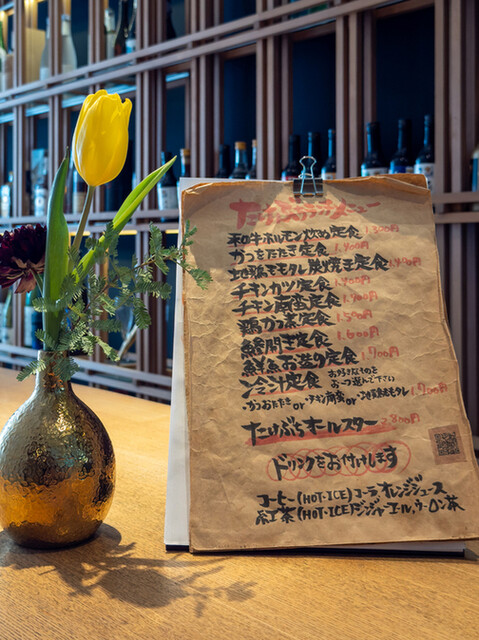 たけぶちランチメニュー
和牛ホルモン炒め定食 1.300円
かつをたたき定食 1.400円
地鶏ももタレ炭焼き定食 1.490円
チキンカツ定食 1.400円
チキン南蛮定食 1.400円
定食 1.500円
開き定食 1.600円
鮮魚お造り定食 1.700円
冷汁定食 お好きなものを
お一つ選んで下さい
・かつおたたき or チキン南蛮 or 地鶏ももタレ 1.900円
たけぶちオールスター 2.800円
ドリンクをお付けします
コーヒー(HOT・ICE)コーラ、オレンジジュース
紅茶(HOT・ICE)ジンジャーエール、ウーロン茶